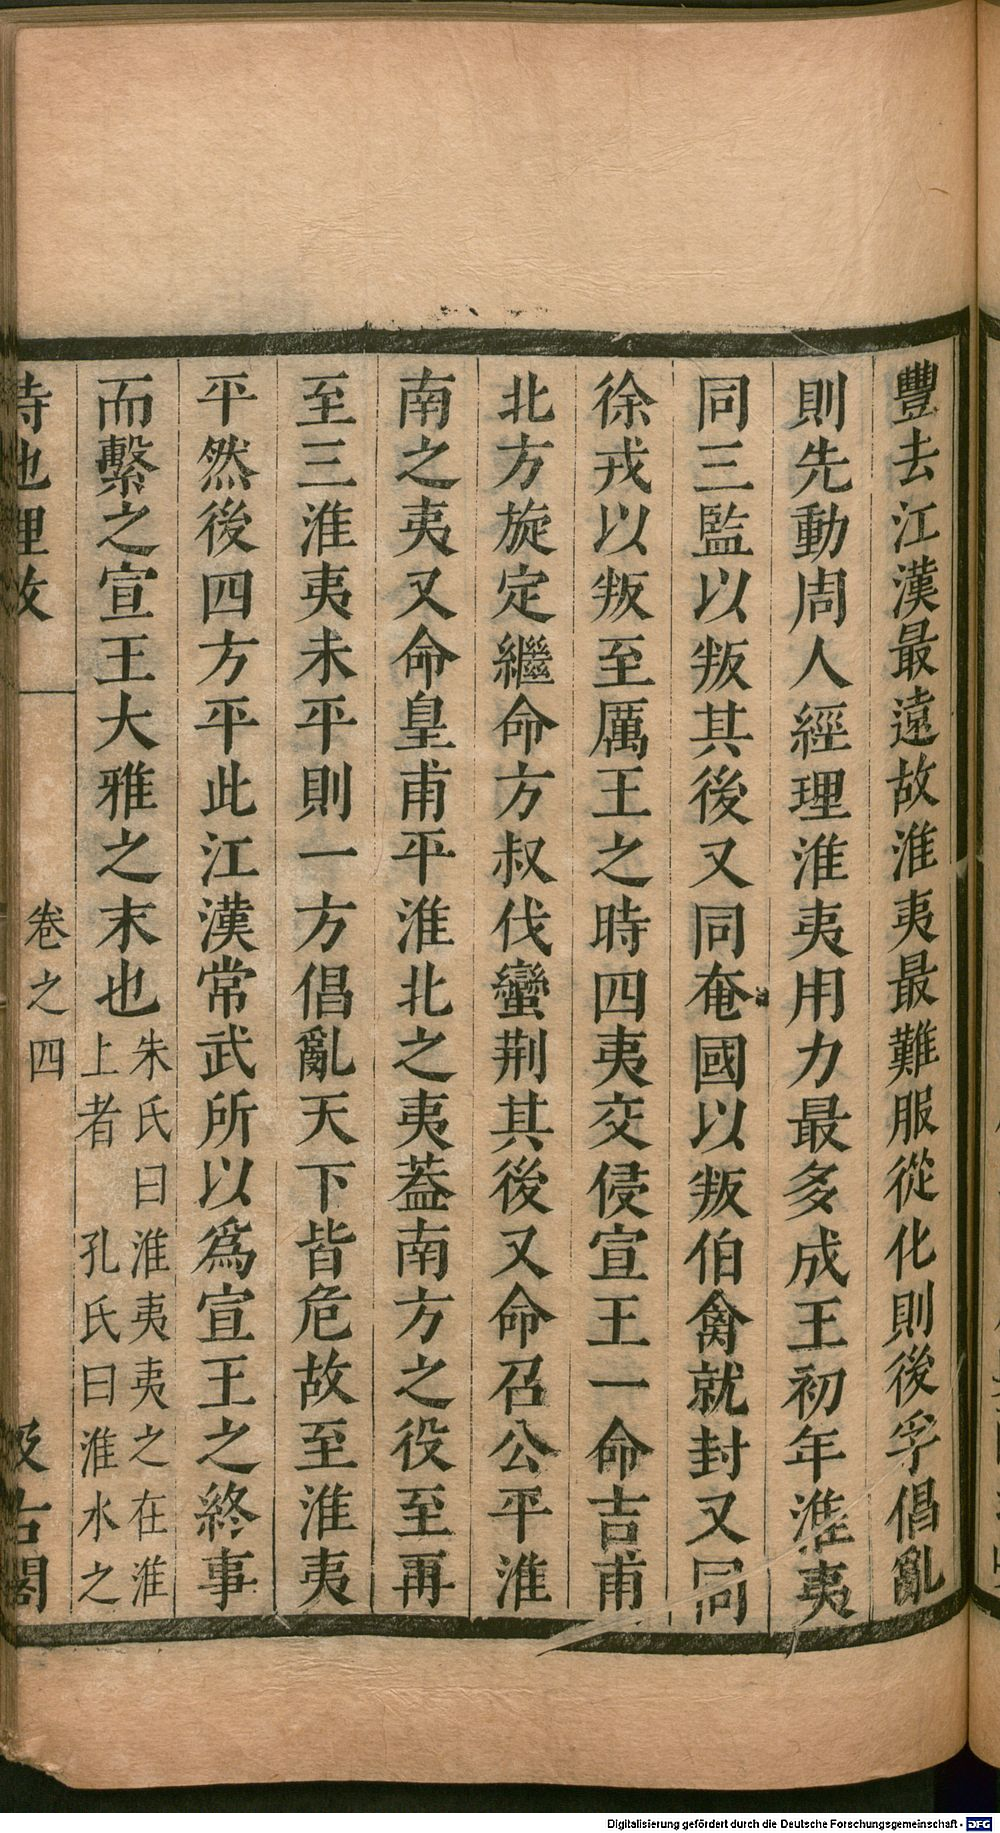 豐去江漢最遠故淮夷最難服從化則後孚倡亂
則先動周人經理淮夷用力最多成王初年淮夷
同三監以叛其後又同奄國以叛伯禽就封又同
徐戎以叛至厲王之時四夷交侵宣王一命吉甫
北方旋定繼命方叔伐蠻荆其後又命召公平淮
南之夷又命皇甫平淮北之夷葢南方之役至再
至三淮夷未平則一方倡亂天下皆危故至淮夷
平然後四方平此江漢常武所以爲宣王之終事
而繫之宣王大雅之末也
朱氏曰淮夷夷之在淮
上者 孔氏曰淮水之
詩地理攷 卷之四 汲古閣
Digitalisierung gefördert durch die Deutsche Forschungsgemeinschaft - DFG